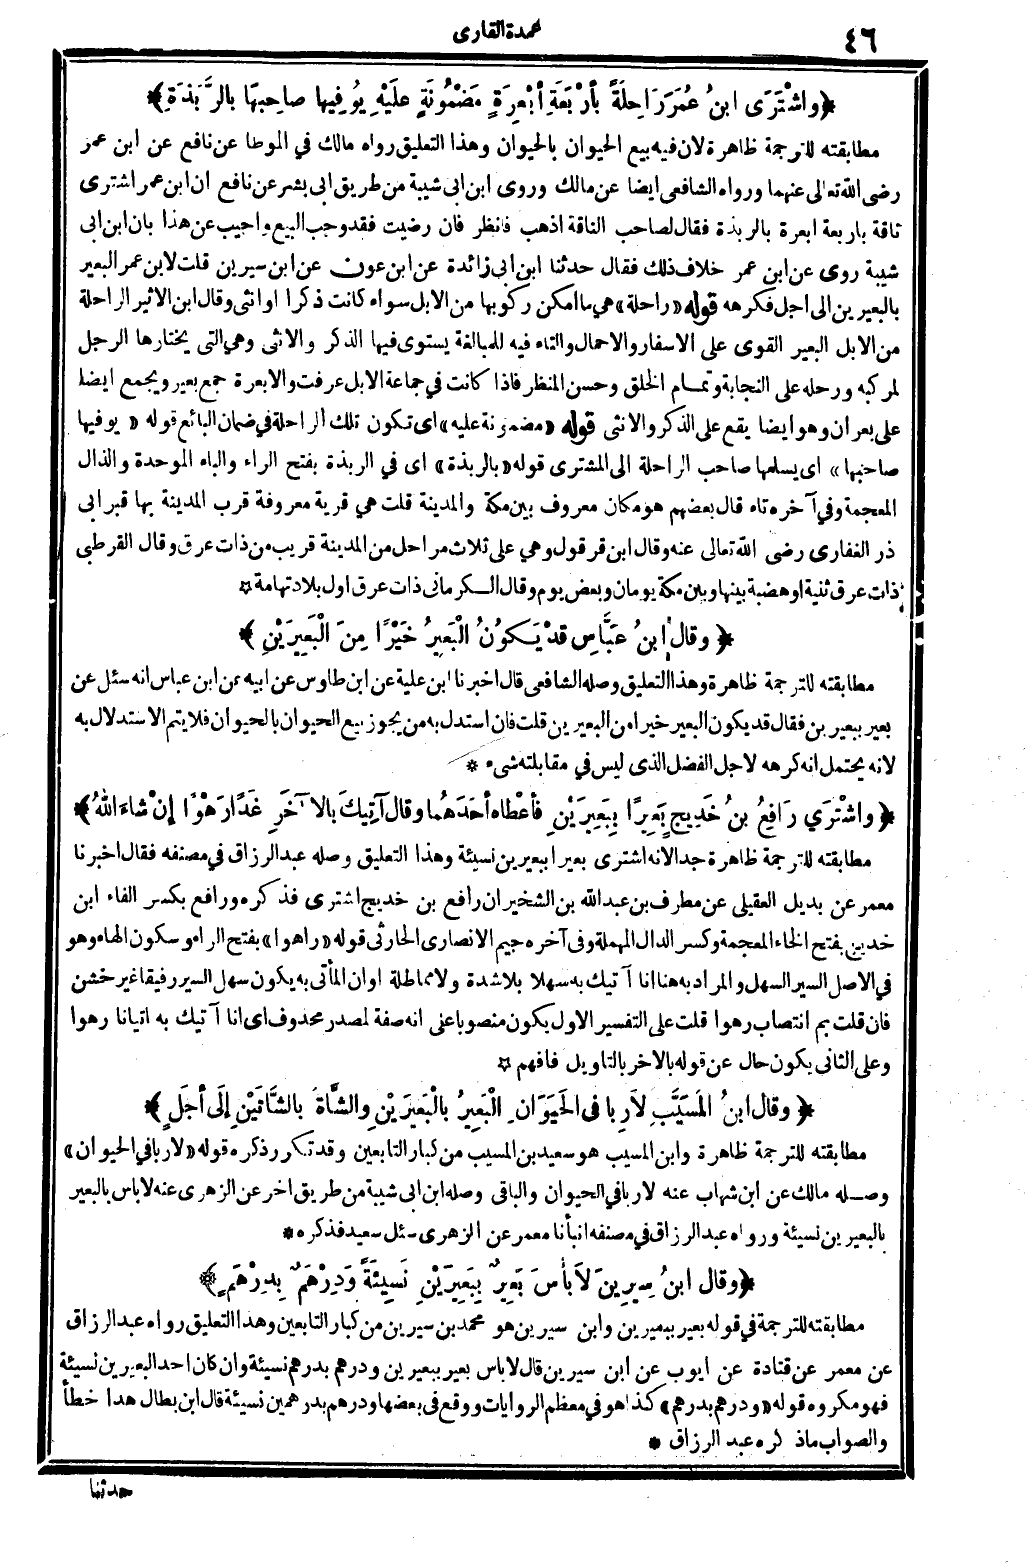 ٤٦
عمدة القارى
﴿واشْتَرَى ابنُ عُمَرَ رَاحِلَةً بأرْبَعَةِ أبْعِرَةٍ مَضْمُونَةٍ عليْهِ يُوفِيها صاحِبَهَا بالرَّبَذَةِ﴾
مطابقته للترجمة ظاهرة لان فيه بيع الحيوان بالحيوان وهذا التعليق رواه مالك في الموطا عن نافع عن ابن عمر
رضى الله تعالى عنهما ورواه الشافعى ايضا عن مالك وروى ابن ابى شيبة من طريق ابى بشر عن نافع ان ابن عمر اشترى
ناقة باربعة ابعرة بالربذة فقال لصاحب الناقة اذهب فانظر فان رضيت فقد وجب البيع واجيب عن هذا بان ابن ابى
شيبة روى عن ابن عمر خلاف ذلك فقال حدثنا ابن ابى زائدة عن ابن عون عن ابن سيرين قلت لابن عمر البعير
بالبعيرين الى اجل فكرهه قوله «راحلة» هي ما امكن ركوبها من الابل سواء كانت ذكرا او انثى وقال ابن الاثير الراحلة
من الابل البعير القوى على الاسفار والاحمال والتاء فيه للمبالغة يستوى فيها الذكر والانثى وهي التى يختارها الرجل
لمركبه ورحله على النجابة وتمام الخلق وحسن المنظر فاذا كانت في جماعة الابل عرفت والابعرة جمع بعير ويجمع ايضا
على بعران وهو ايضا يقع على الذكر والانثى قوله «مضمونة عليه» اى تكون تلك الراحلة في ضمان البائع قوله «يوفيها
صاحبها» اى يسلمها صاحب الراحلة الى المشترى قوله «بالربذة» اى في الربذة بفتح الراء والباء الموحدة والذال
المعجمة وفي آخره تاء قال بعضهم هو مكان معروف بين مكة والمدينة قلت هي قرية معروفة قرب المدينة بها قبر ابى
ذر الغفارى رضى الله تعالى عنه وقال ابن قرقول وهي على ثلاث مراحل من المدينة قريب من ذات عرق وقال القرطبى
ذات عرق ثنية او هضبة بينها وبين مكة يومان وبعض يوم وقال الكرمانى ذات عرق اول بلاد تهامة *
﴿وقال ابنُ عَبَّاسٍ قدْ يَكُونُ الْبَعِيرُ خَيْرًا مِنَ الْبَعِيرَيْنِ﴾
مطابقته للترجمة ظاهرة وهذا التعليق وصله الشافعى قال اخبرنا ابن علية عن ابن طاوس عن ابيه عن ابن عباس انه سئل عن
بعير ببعيرين فقال قد يكون البعير خيرا من البعيرين قلت فان استدل به من يجوز بيع الحيوان بالحيوان فلا يتم الاستدلال به
لانه يحتمل انه كرهه لاجل الفضل الذى ليس في مقابلته شىء *
﴿واشْتَرَي رَافِعُ بنُ خَدِيجٍ بَعِيرًا بِبَعِيرَيْنِ فأعْطاه أحَدَهُما وقال آتِيكَ بالآخَرِ غَدًا رَهْوًا إنْ شاءَ اللهُ﴾
مطابقته للترجمة ظاهرة جدا لانه اشترى بعيرا ببعيرين نسيئة وهذا التعليق وصله عبد الرزاق في مصنفه فقال اخبرنا
معمر عن بديل العقيلى عن مطرف بن عبد الله بن الشخير ان رافع بن خديج اشترى فذكره ورافع بكسر الفاء ابن
خديج بفتح الخاء المعجمة وكسر الدال المهملة وفى آخره جيم الانصارى الحارثى قوله «راهوا» بفتح الراء وسكون الهاء وهو
في الاصل السير السهل والمراد به هنا انا آتيك به سهلا بلا شدة ولا مماطلة او ان المأتى به يكون سهل السير رفيقا غير خشن
فان قلت بم انتصاب رهوا قلت على التفسير الاول يكون منصوبا على انه صفة لمصدر محذوف اى انا آتيك به اتيانا رهوا
وعلى الثانى يكون حال عن قوله بالاخر بالتاويل فافهم *
﴿وقال ابنُ المُسَيَّبِ لاَ رِبا فى الحَيَوَانِ الْبَعِيرُ بالْبَعِيرَيْنِ والشَّاةُ بالشَّاتَيْنِ إلَى أجَلٍ﴾
مطابقته للترجمة ظاهرة وابن المسيب هو سعيد بن المسيب من كبار التابعين وقد تكرر ذكره قوله «لا ربا في الحيوان»
وصله مالك عن ابن شهاب عنه لا ربا في الحيوان والباقى وصله ابن ابى شيبة من طريق اخر عن الزهرى عنه لا باس بالبعير
بالبعيرين نسيئة ورواه عبد الرزاق في مصنفه انبأنا معمر عن الزهرى سئل سعيد فذكره *
﴿وقال ابنُ سِيرِينَ لاَ بأسَ بَعِيرٌ بِبَعِيرَيْنِ نَسِيئَةً وَدِرْهَمٌ بِدِرْهَمٍ﴾
مطابقته للترجمة في قوله بعير ببعيرين وابن سيرين هو محمد بن سيرين من كبار التابعين وهذا التعليق رواه عبد الرزاق
عن معمر عن قتادة عن ايوب عن ابن سيرين قال لا باس بعير ببعيرين ودرهم بدرهم نسيئة وان كان احد البعيرين نسيئة
فهو مكروه قوله «ودرهم بدرهم» كذا هو في معظم الروايات ووقع فى بعضها ودرهم بدرهمين نسيئة قال ابن بطال هذا خطأ
والصواب ماذكره عبد الرزاق *
حدثنا